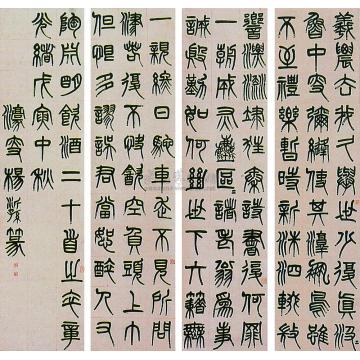 羲農去我久舉世少復真汲
魯中叟彌縫使其淳鳳鳥雖
不至禮樂暫時新洙泗輟微
響漂流逮狂秦詩書復何罪
一朝成灰塵區諸老翁為事
誠殷勤如何絕世下六籍無
一親終日馳車走不見所問
津若復不快飲空負頭上巾
但恨多謬誤君當恕醉人
陶淵明飲酒二十首之卒章
光緒戊寅中秋
濠叟楊沂孫篆